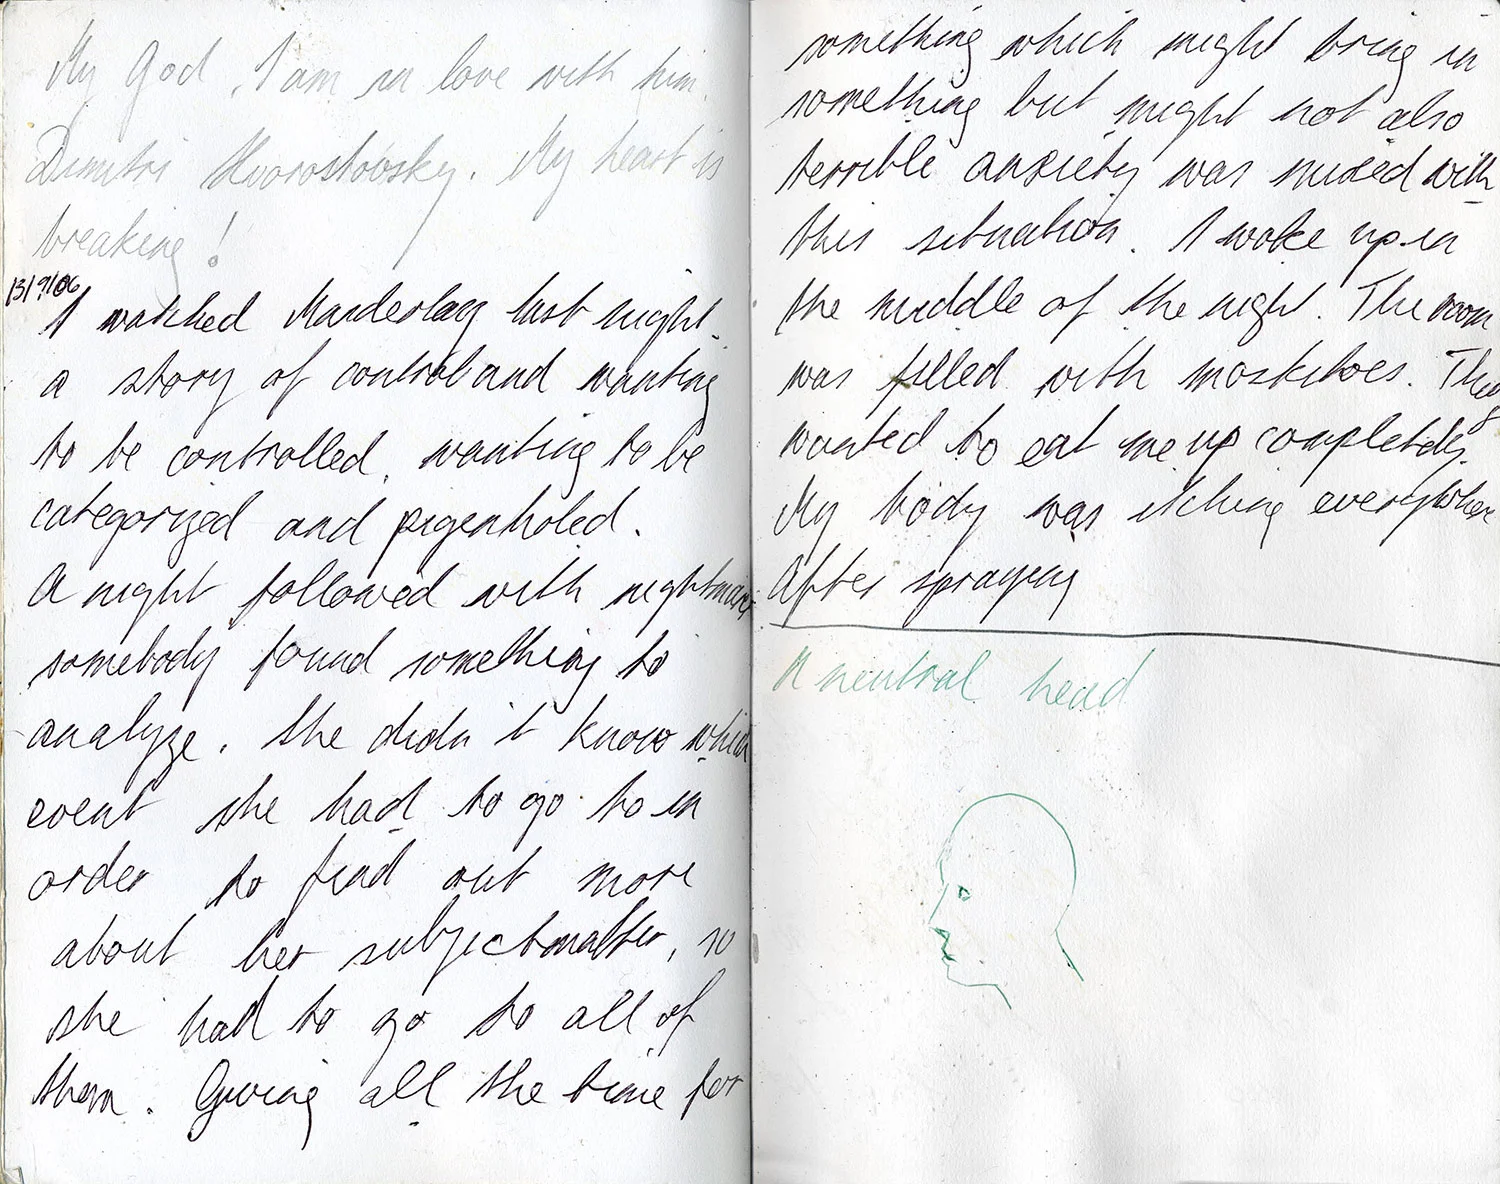 My God, I am in love with him.
Dimitri Hvorostovsky. My heart is
breaking!
13/9/06
I watched Manderlay last night.
a story of control and wanting
to be controlled, wanting to be
categorized and pigenholed.
A night followed with nightmares
somebody found something to
analyze. She didn't know which
event she had to go to in
order to find out more
about her subjectmatter, so
she had to go to all of
them. Giving all the time for
something which might bring in
something but might not also
terrible anxiety was mixed with
this situation. I woke up in
the middle of the night. The room
was filled with moskitoes. They
wanted to eat me up completely.
My body was itching everywhere
After spraying
A neutral head